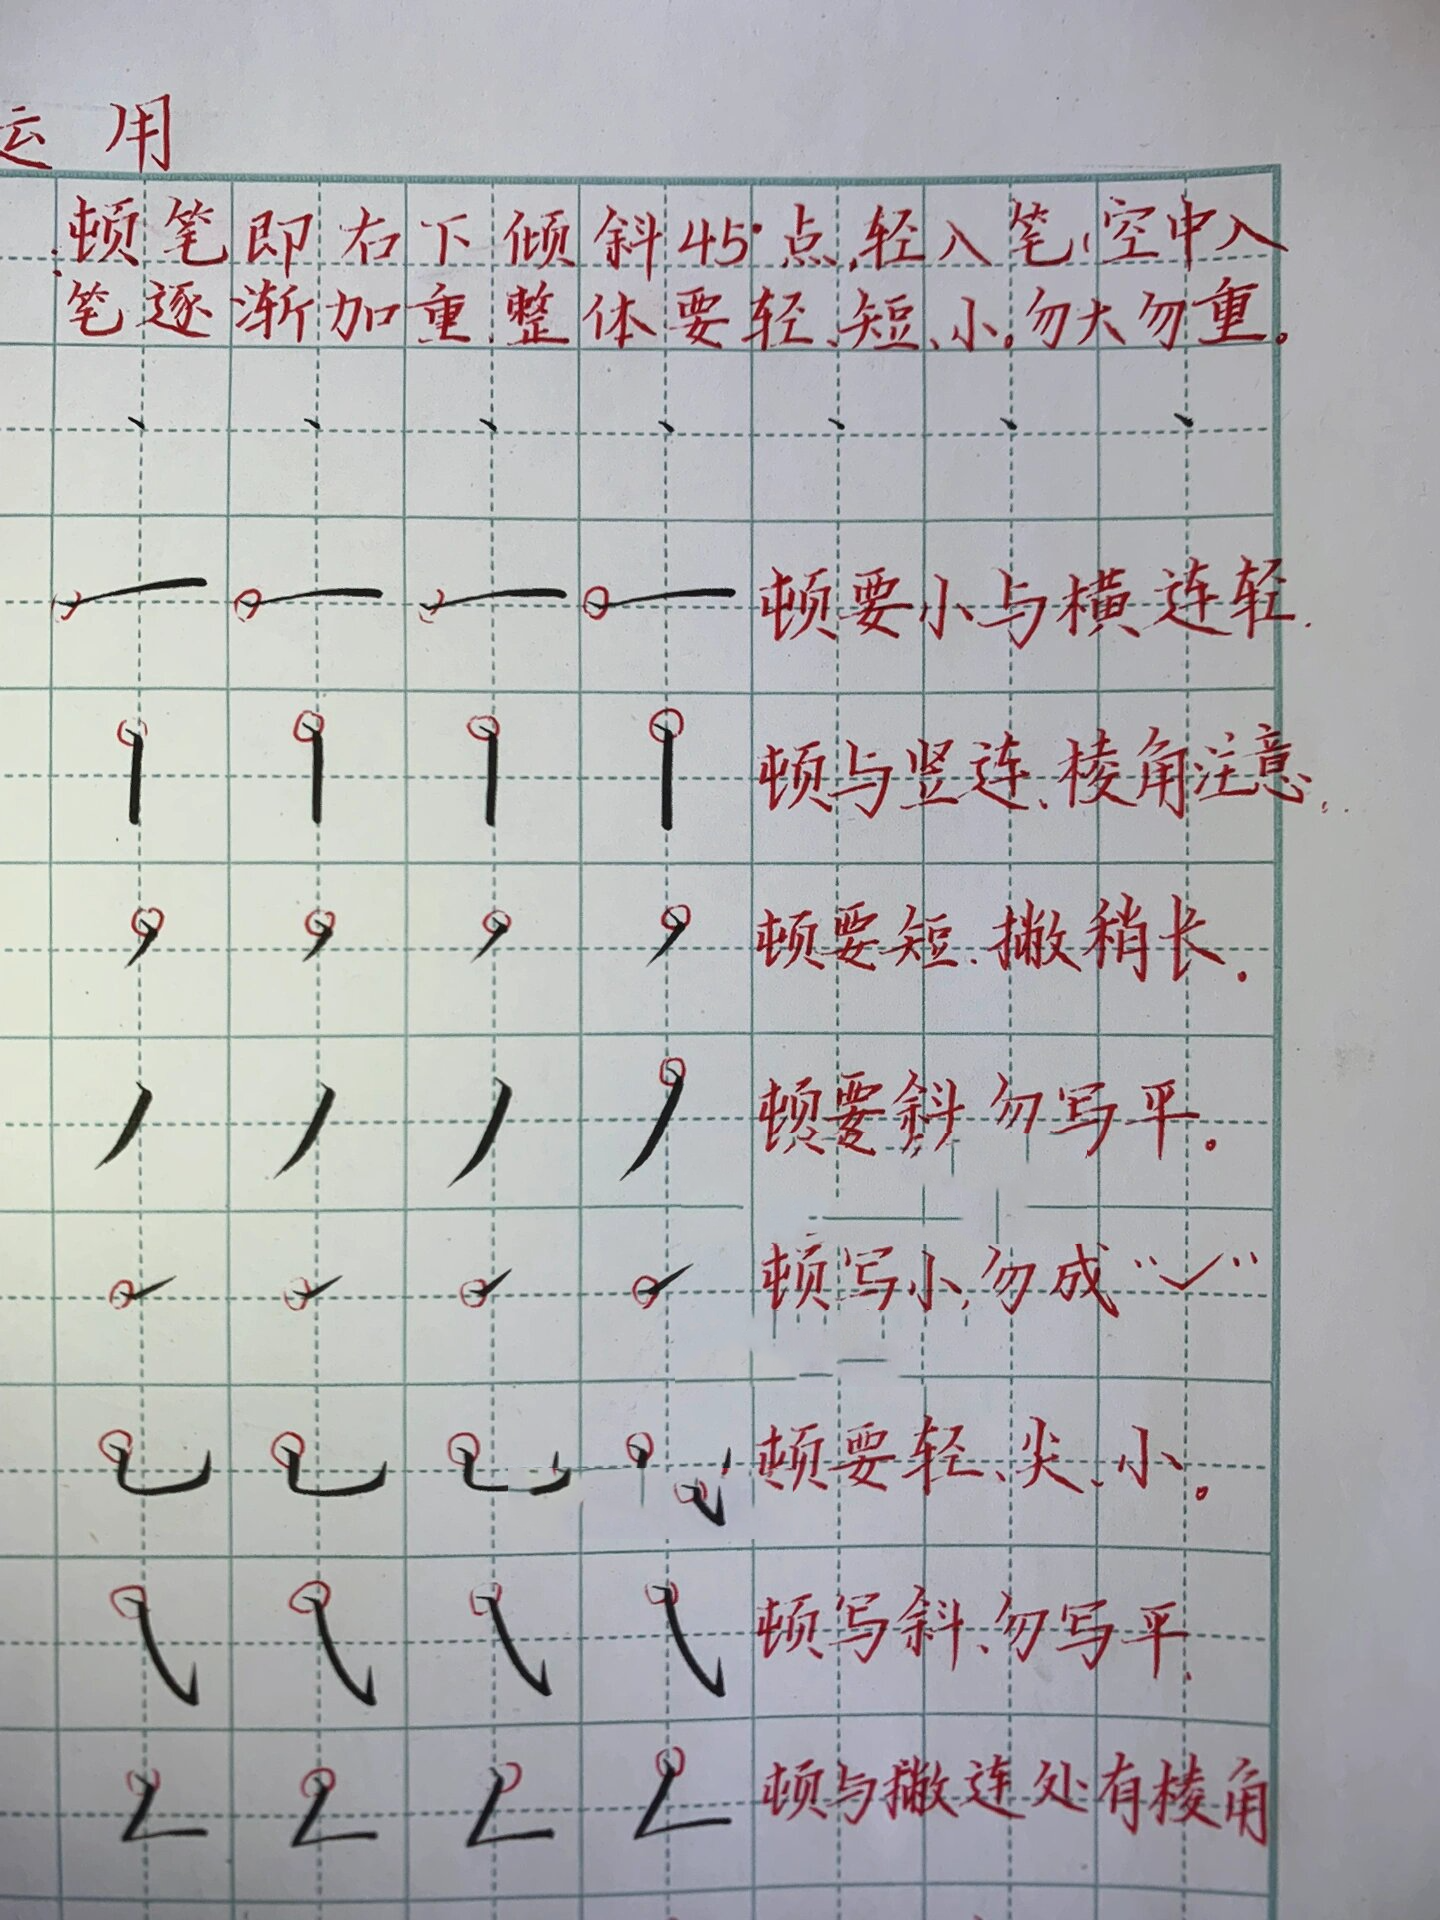 运用
顿笔即右下倾斜45°点,轻入笔,空中入
笔逐渐加重,整体要轻、短、小。勿大勿重。
顿要小与横连轻.
顿与竖连、棱角注意.
顿要短.撇稍长.
顿要斜 勿写平。
顿写小,勿成“✓”
顿要轻、尖、小。
顿写斜、勿写平.
顿与撇连处有棱角